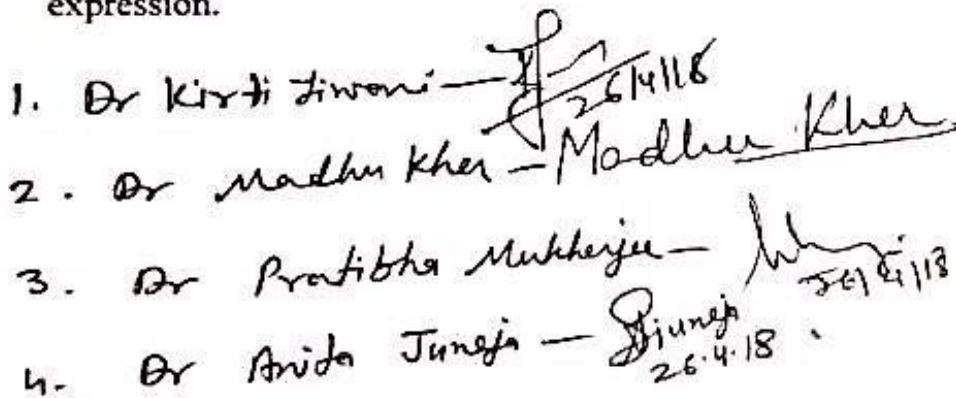 expression.
1. Dr Kirti Tiwari - 26/4/18
2. Dr Madhu Kher - Madhu Kher
3. Dr Pratibha Mukherjee - 26/4/18
4. Dr Anita Juneja - Juneja 26.4.18